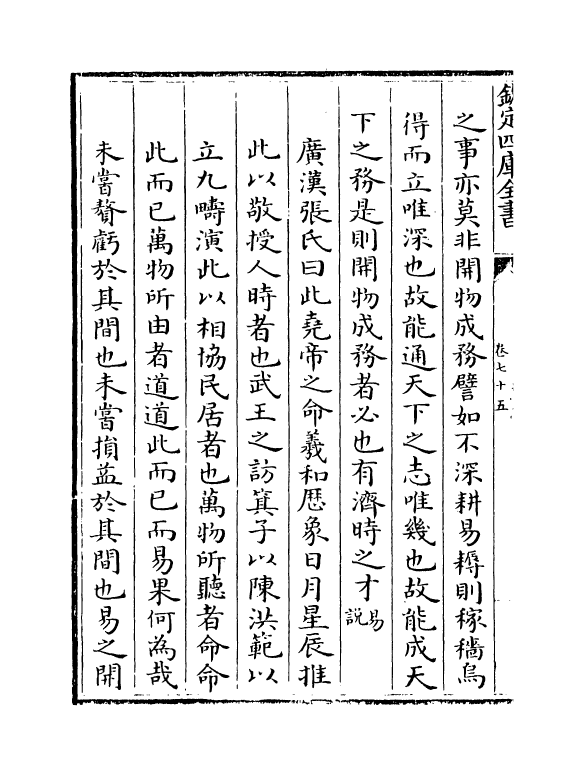 欽定四庫全書
卷七十五
之事亦莫非開物成務譬如不深耕易耨則稼穡烏
得而立唯深也故能通天下之志唯幾也故能成天
下之務是則開物成務者必也有濟時之才易說
廣漢張氏曰此堯帝之命羲和厯象日月星辰推
此以敬授人時者也武王之訪箕子以陳洪範以
立九疇演此以相協民居者也萬物所聽者命命
此而已萬物所由者道道此而已而易果何為哉
未嘗贅虧於其間也未嘗損益於其間也易之開